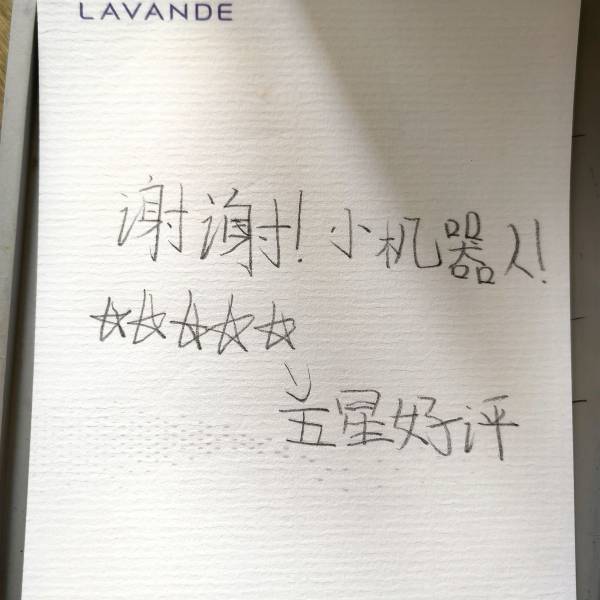 LAVANDE
谢谢!小机器人!
☆☆☆☆☆
五星好评